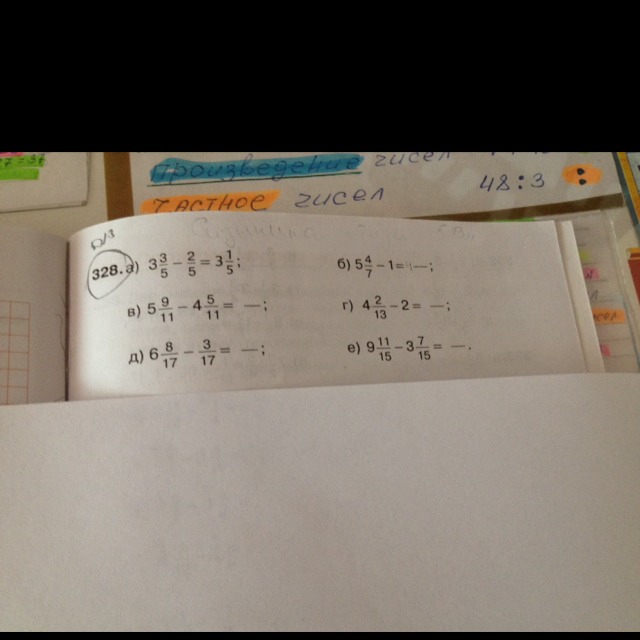 произведение чисел
частное чисел 48:3 :
Д/З
328. а) 3 3/5 − 2/5 = 3 1/5; б) 5 4/7 − 1 = —;
в) 5 9/11 − 4 5/11 = —; г) 4 2/13 − 2 = —;
д) 6 8/17 − 3/17 = —; е) 9 11/15 − 3 7/15 = —.